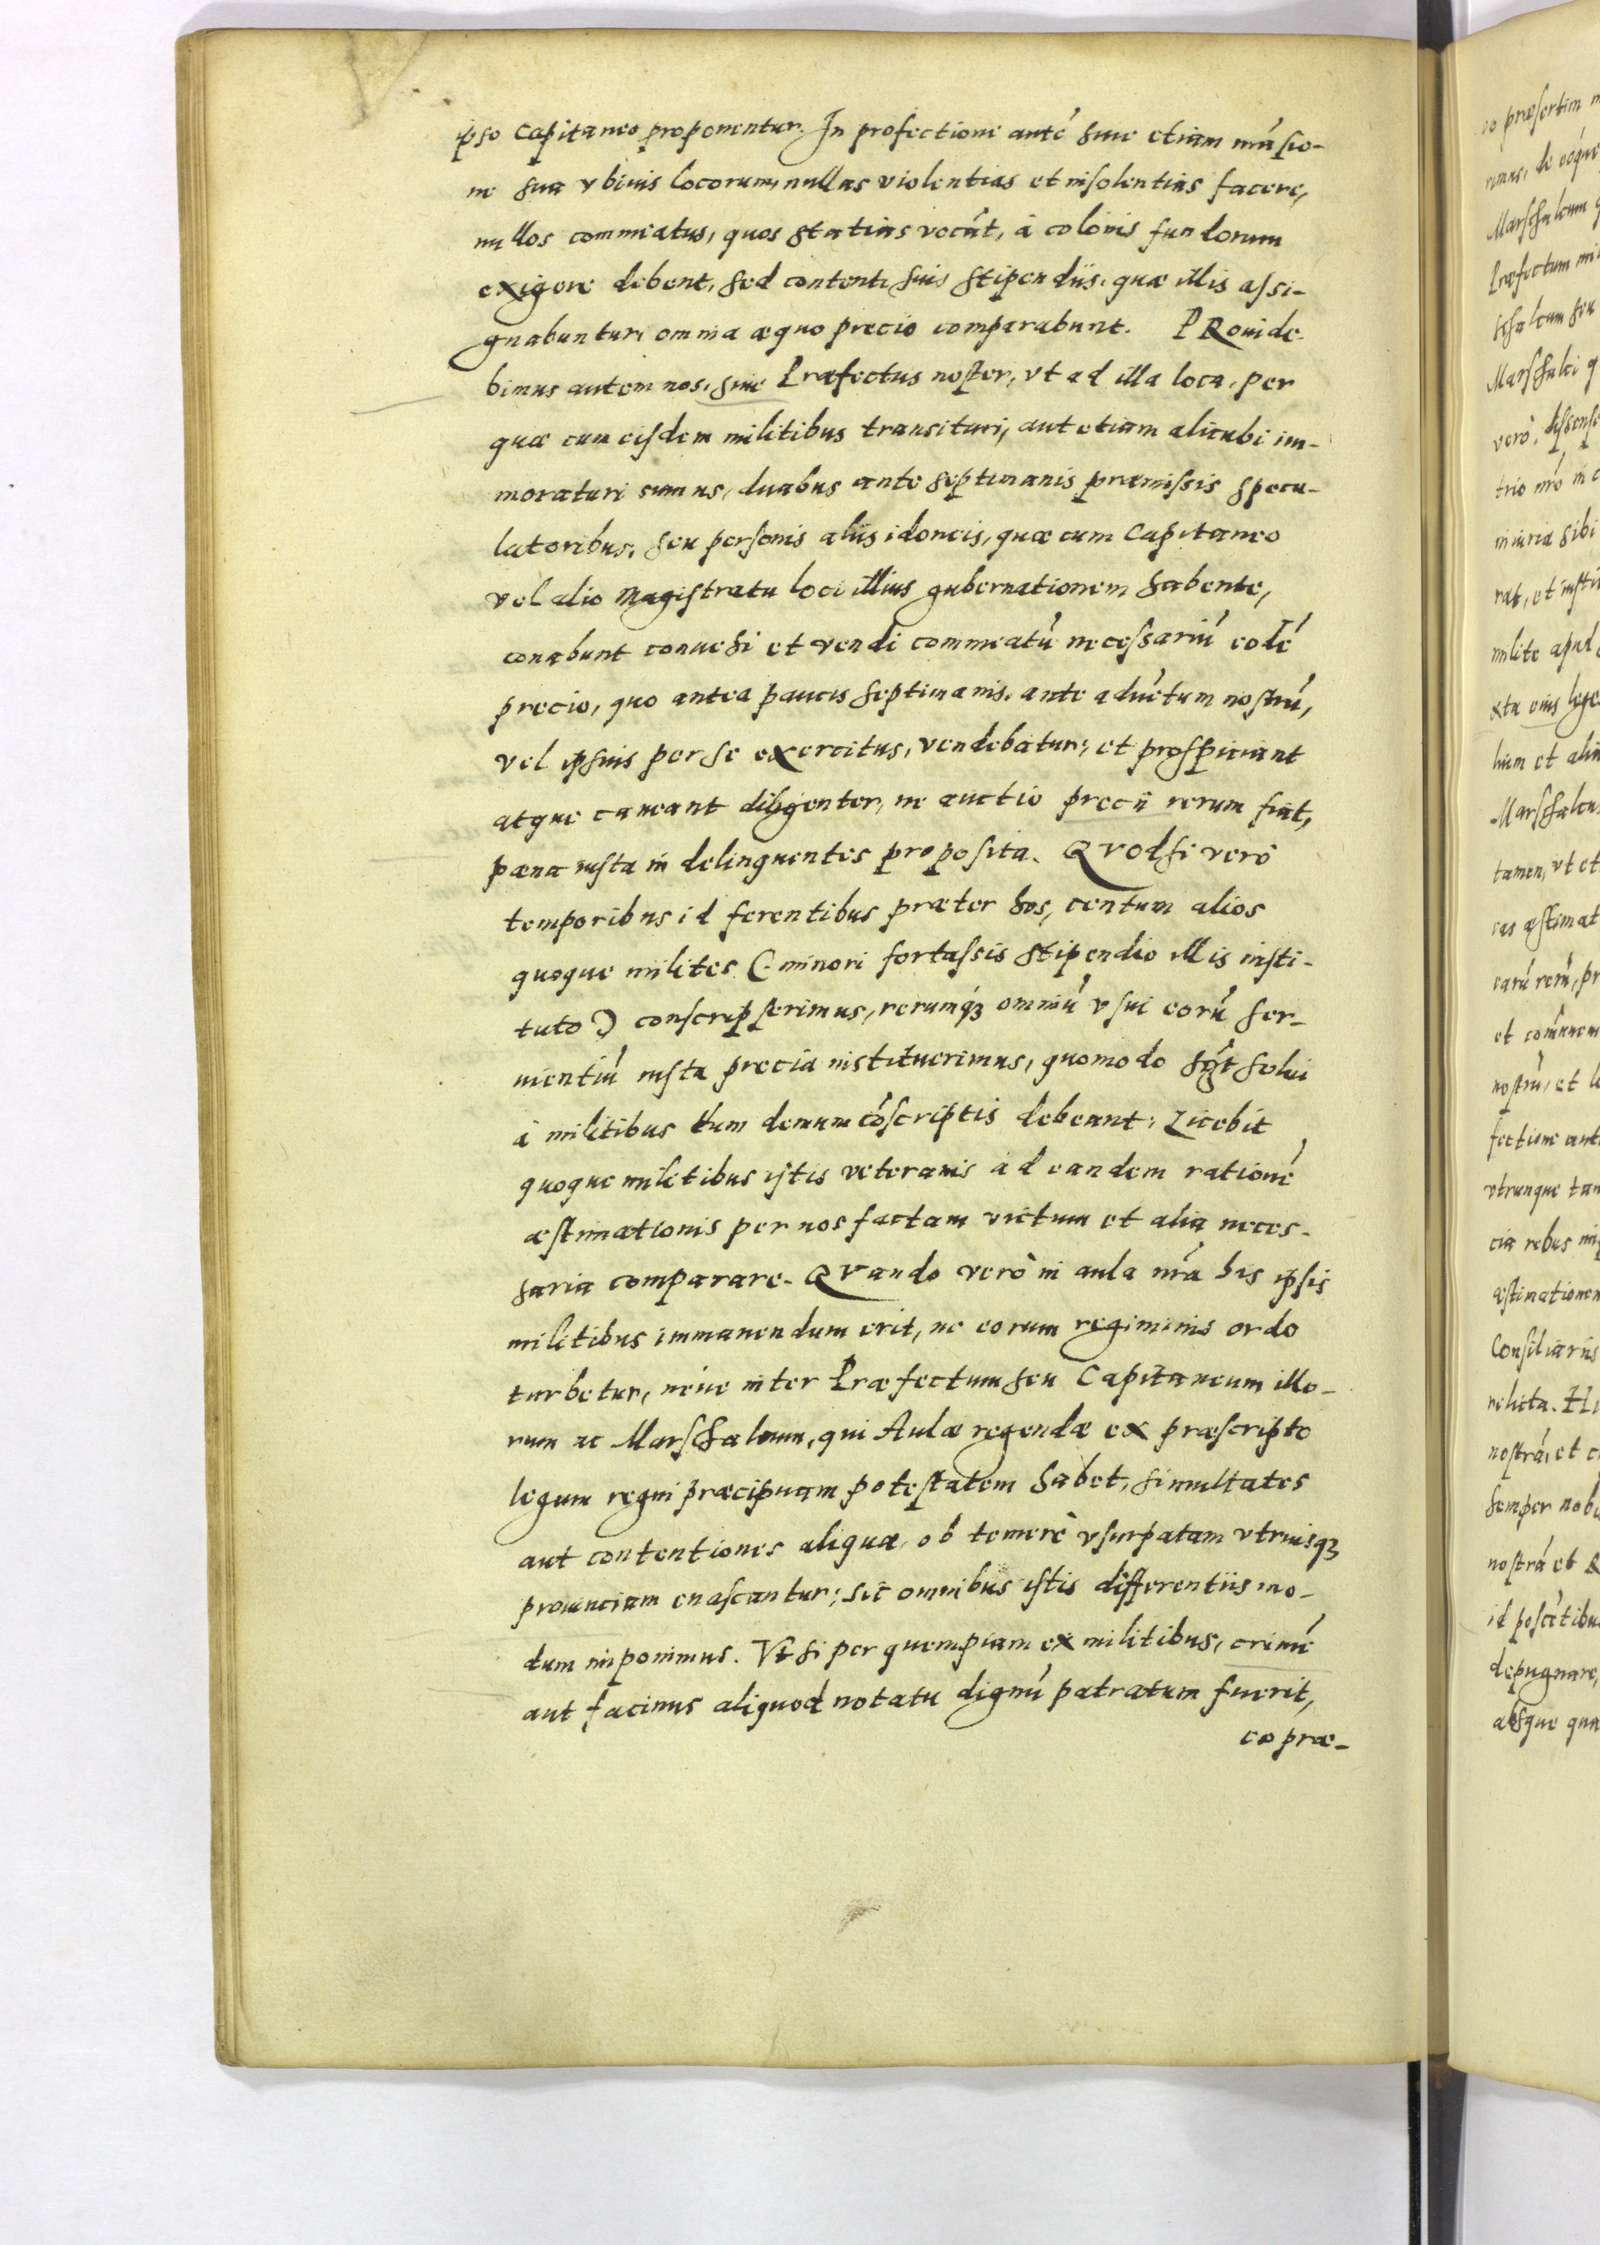 ipso Capitaneo proponentur. In profectione auté siue etiam mãsio-
ne sua vbiuis locorum, nullas violentias et insolentias facere,
nullos commeatus, quos statias vocãt, à colonis fundorum
exigere debent, sed contenti suis stipendiis, quæ illis assi-
gnabuntur, omnia æquo precio comparabunt. PRouide-
bimus autem nos, siue Præfectus noster, vt ad illa loca, per
quæ cum eisdem militibus transituri, aut etiam alicubi im-
moraturi sumus, duabus ante septimanis præmissis specu-
latoribus, seu personis aliis idoneis, quæ cum Capitaneo
vel alio Magistratu loci illius gubernationem habente,
conabunt conuehi et vendi commeatũ necessariũ eodẽ
precio, quo antea paucis septimanis, ante aduẽtum nostrũ,
vel ipsius per se exercitus, vendebatur; et prospiciant
atque caueant diligenter, ne auctio precii rerum fiat,
pæna iusta in delinquentes proposita. QVodsi verò
temporibus id ferentibus præter hos, centum alios
quoque milites (minori fortassis stipendio illis insti-
tuto) conscripserimus, rerumq́ꝫ omniũ vsui eorũ ser-
uientiũ iusta precia instituerimus, quomodo solui
à militibus tum demum cõscriptis debeant; Licebit
quoque militibus istis veteranis ad eandem rationẽ
æstimationis per nos factam victum et alia neces-
saria comparare. QVando verò in aula nr̃a his ipsis
militibus immanendum erit, ne eorum regiminis ordo
turbetur, néue inter Præfectum seu Capitaneum illo-
rum ac Marschalcum, qui Aulæ regendæ ex præscripto
legum regni præcipuam potestatem habet, simultates
aut contentiones aliquæ, ob temerè vsurpatam vtriusqꝫ
prouinciam enascantur; sic omnibus istis differentiis mo-
dum imponimus. Vt si per quempiam ex militibus, crimẽ
aut facinus aliquod notatu dignũ patratum fuerit,
eo præ-